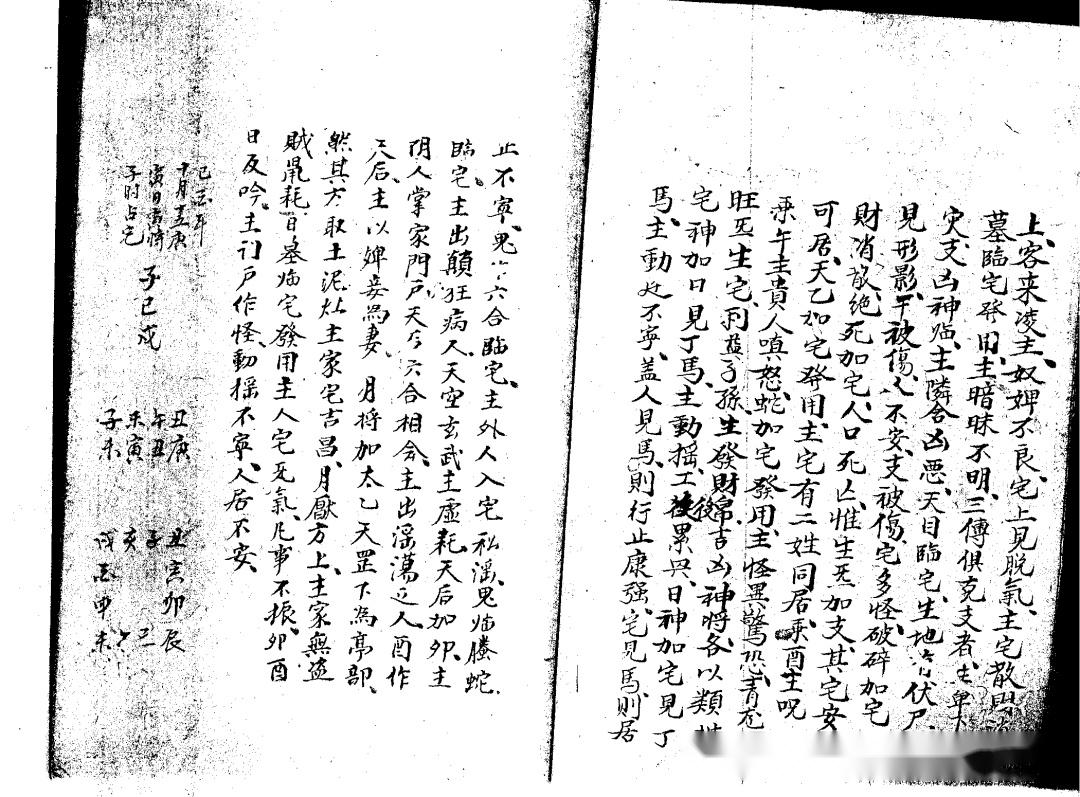 上、客来凌主、奴婢不良、宅上見脱氣、主宅散
墓臨宅發用、主暗昧不明、三傳俱克支者、主
灾、支凶神臨、主隣舍凶惡、天目臨宅、生地伏尸
見形影、干被傷、人不安、支被傷、宅多怪、破碎加宅
財消散、絶死加宅、人口死亡、惟生炁加支、其宅安
可居、天乙加宅發用、主宅有二姓同居、乘酉主呪
乘午主貴人嗔怒、蛇加宅發用、主怪異驚恐、青
旺炁生宅、利益子孫、生發財帛、吉凶神將、各以類
宅神加日見丁馬、主動揺、工役累興、日神加宅見丁
馬、主動处不寧、盖人見馬、則行止康强、宅見馬、則居
止不寧、鬼 六合臨宅、主外人入宅私淫、鬼临螣蛇
臨宅、主出顛狂病人、天空玄武主虚耗、天后加卯、主
阴人掌家門户、天后六合相会、主出淫蕩之人、酉作
天后、主以婢妾為妻、月将加太乙天罡下為亭部、
然其方取土泥灶、主家宅吉昌、月厭方上、主家無盗
賊鼠耗、日墓临宅發用、主人宅死氣、凡事不振、卯酉
日反吟、主门户作怪、動揺不寧、人居不安、
十月 庚
寅日寅将
子时占宅
子 巳 戌
丑庚 午丑 未寅 子未
丑 寅 卯 辰
子
亥
戌 酉 申 未